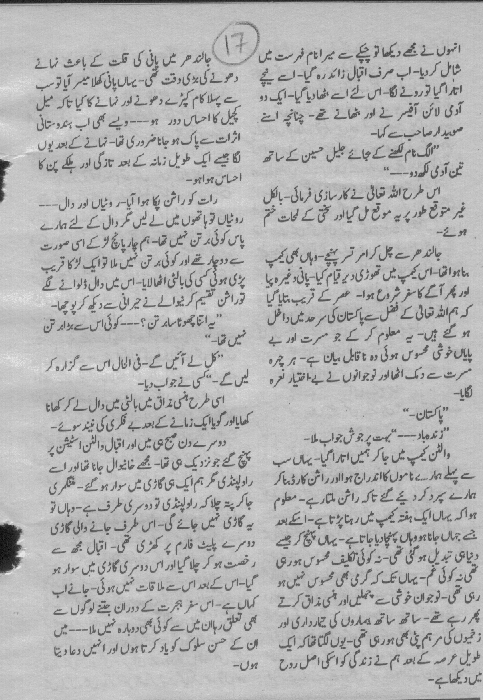 17
انہوں نے مجھے دیکھا تو چپکے سے میرا نام فہرست میں
شامل کر دیا۔ اب صرف اقبال زائد رہ گیا۔ اسے نیچے
اتارا گیا تو رونے لگا۔ اس لئے اسے بٹھا دیا گیا۔ ایک دو
آدمی لائن آفیسر نے اور بٹھانے تھے۔ چنانچہ اسنے
صوبیدار صاحب سے کہا۔
"الگ نام لکھنے کے بجائے جلیل حسین کے ساتھ
تین آدمی لکھ دو۔۔۔"
اس طرح اللہ تعالیٰ نے کارسازی فرمائی۔ بالکل
غیر متوقع طور پر یہ موقع مل گیا اور سختی کے لمحات ختم
ہوئے۔
جالندھر سے چل کر امرتسر پہنچے۔ وہاں بھی کیمپ
بنا ہوا تھا۔ اس کیمپ میں تھوڑی دیر قیام کیا۔ پانی وغیرہ پیا
اور پھر آگے کا سفر شروع ہوا۔ عصر کے قریب بتایا گیا
کہ ہم اللہ تعالیٰ کے فضل سے پاکستان کی سرحد میں داخل
ہو گئے ہیں۔ یہ معلوم کر کے جو مسرت اور بے
پایاں خوشی محسوس ہوئی وہ ناقابل بیان ہے۔ ہر چہرہ
مسرت سے دمک اٹھا اور نوجوانوں نے بے اختیار نعرہ
لگایا۔
"پاکستان۔"
"زندہ باد۔۔۔" بہت پر جوش جواب ملا۔
والٹن کیمپ میں جا کر ہمیں اتارا گیا۔ یہاں سب
سے پہلے ہمارے ناموں کا اندراج ہوا اور راشن کارڈ بنا کر
ہمارے سپرد کر دیئے گئے تاکہ راشن ملتا رہے۔ معلوم
ہوا کہ یہاں ایک ہفتہ کیمپ میں رہنا پڑتا ہے۔ اسکے بعد
جسے جہاں جانا ہو وہاں پہنچا دیا جاتا ہے۔ یہاں پہنچ کر جیسے
دنیا ہی تبدیل ہو گئی تھی۔ نہ کوئی تکلیف محسوس ہو رہی
تھی نہ کوئی غم۔ یہاں تک کہ گرمی بھی محسوس نہیں ہو
رہی تھی۔ نوجوان خوشی سے چہلیں اور ہنسی مذاق کرتے
پھر رہے تھے۔ ساتھ ساتھ بیماروں کی تیمارداری اور
زخمیوں کی مرہم پٹی بھی ہو رہی تھی۔ یوں لگتا تھا کہ ایک
طویل عرصہ کے بعد ہم نے زندگی کو اسکی اصل روح
میں دیکھا ہے۔
جالندھر میں پانی کی قلت کے باعث نہانے
دھونے کی بڑی دقت تھی۔ یہاں پانی کھلا میسر آیا تو سب
سے پہلا کام کپڑے دھونے اور نہانے کا کیا تاکہ میل
کچیل کا احساس دور ہو۔۔۔ ویسے بھی اب ہندوستانی
اثرات سے پاک ہو جانا ضروری تھا۔ نہانے کے بعد یوں
لگا جیسے ایک طویل زمانہ کے بعد تازگی اور ہلکے پن کا
احساس ہوا ہو۔
رات کو راشن پکا ہوا آیا۔ روٹیاں اور دال۔۔۔
روٹیاں تو ہاتھوں میں لے لیں مگر دال کے لئے ہمارے
پاس کوئی برتن نہیں تھا۔ ہم چار پانچ لڑکے اسی صورت
سے دوچار تھے اور کوئی برتن نہیں ملا تو ایک لڑکا قریب
پڑی ہوئی کسی کی بالٹی اٹھا لایا۔ اس میں دال ڈلوانے لگے
تو راشن تقسیم کرنیوالے نے حیرانی سے دیکھ کر پوچھا۔
"یہ اتنا چھوٹا سا برتن؟۔۔۔ کوئی اس سے بڑا برتن
نہیں تھا۔"
"کل لے آئیں گے۔ فی الحال اس سے گزارہ کر
لیں گے۔" کسی نے جواب دیا۔
اسی طرح ہنسی مذاق میں بالٹی میں دال لے کر کھانا
کھایا اور گویا ایک زمانے کے بعد بے فکری کی نیند سوئے۔
دوسرے دن صبح ہی میں اور اقبال والٹن اسٹیشن پر
پہنچ گئے جو نزدیک ہی تھا۔ مجھے خانیوال جانا تھا اور اسے
راولپنڈی مگر ہم ایک ہی گاڑی میں سوار ہو گئے۔ منٹگمری
جا کر پتہ چلا کہ راولپنڈی تو دوسری طرف ہے۔ وہاں تو
یہ گاڑی نہیں جائے گی۔ اس طرف جانے والی گاڑی
دوسرے پلیٹ فارم پر کھڑی تھی۔ اقبال مجھ سے
رخصت ہو کر چلا گیا اور اس دوسری گاڑی میں سوار ہو
گیا۔ اس کے بعد اس سے ملاقات نہیں ہوئی۔ جانے اب
کہاں ہے۔ اس سفر ہجرت کے دوران جتنے لوگوں سے
بھی تعلق رہا ان میں سے کوئی بھی دوبارہ نہیں ملا۔۔۔ میں
ان کے حسن سلوک کو یاد کرتا ہوں اور انہیں دعا دیتا
ہوں۔